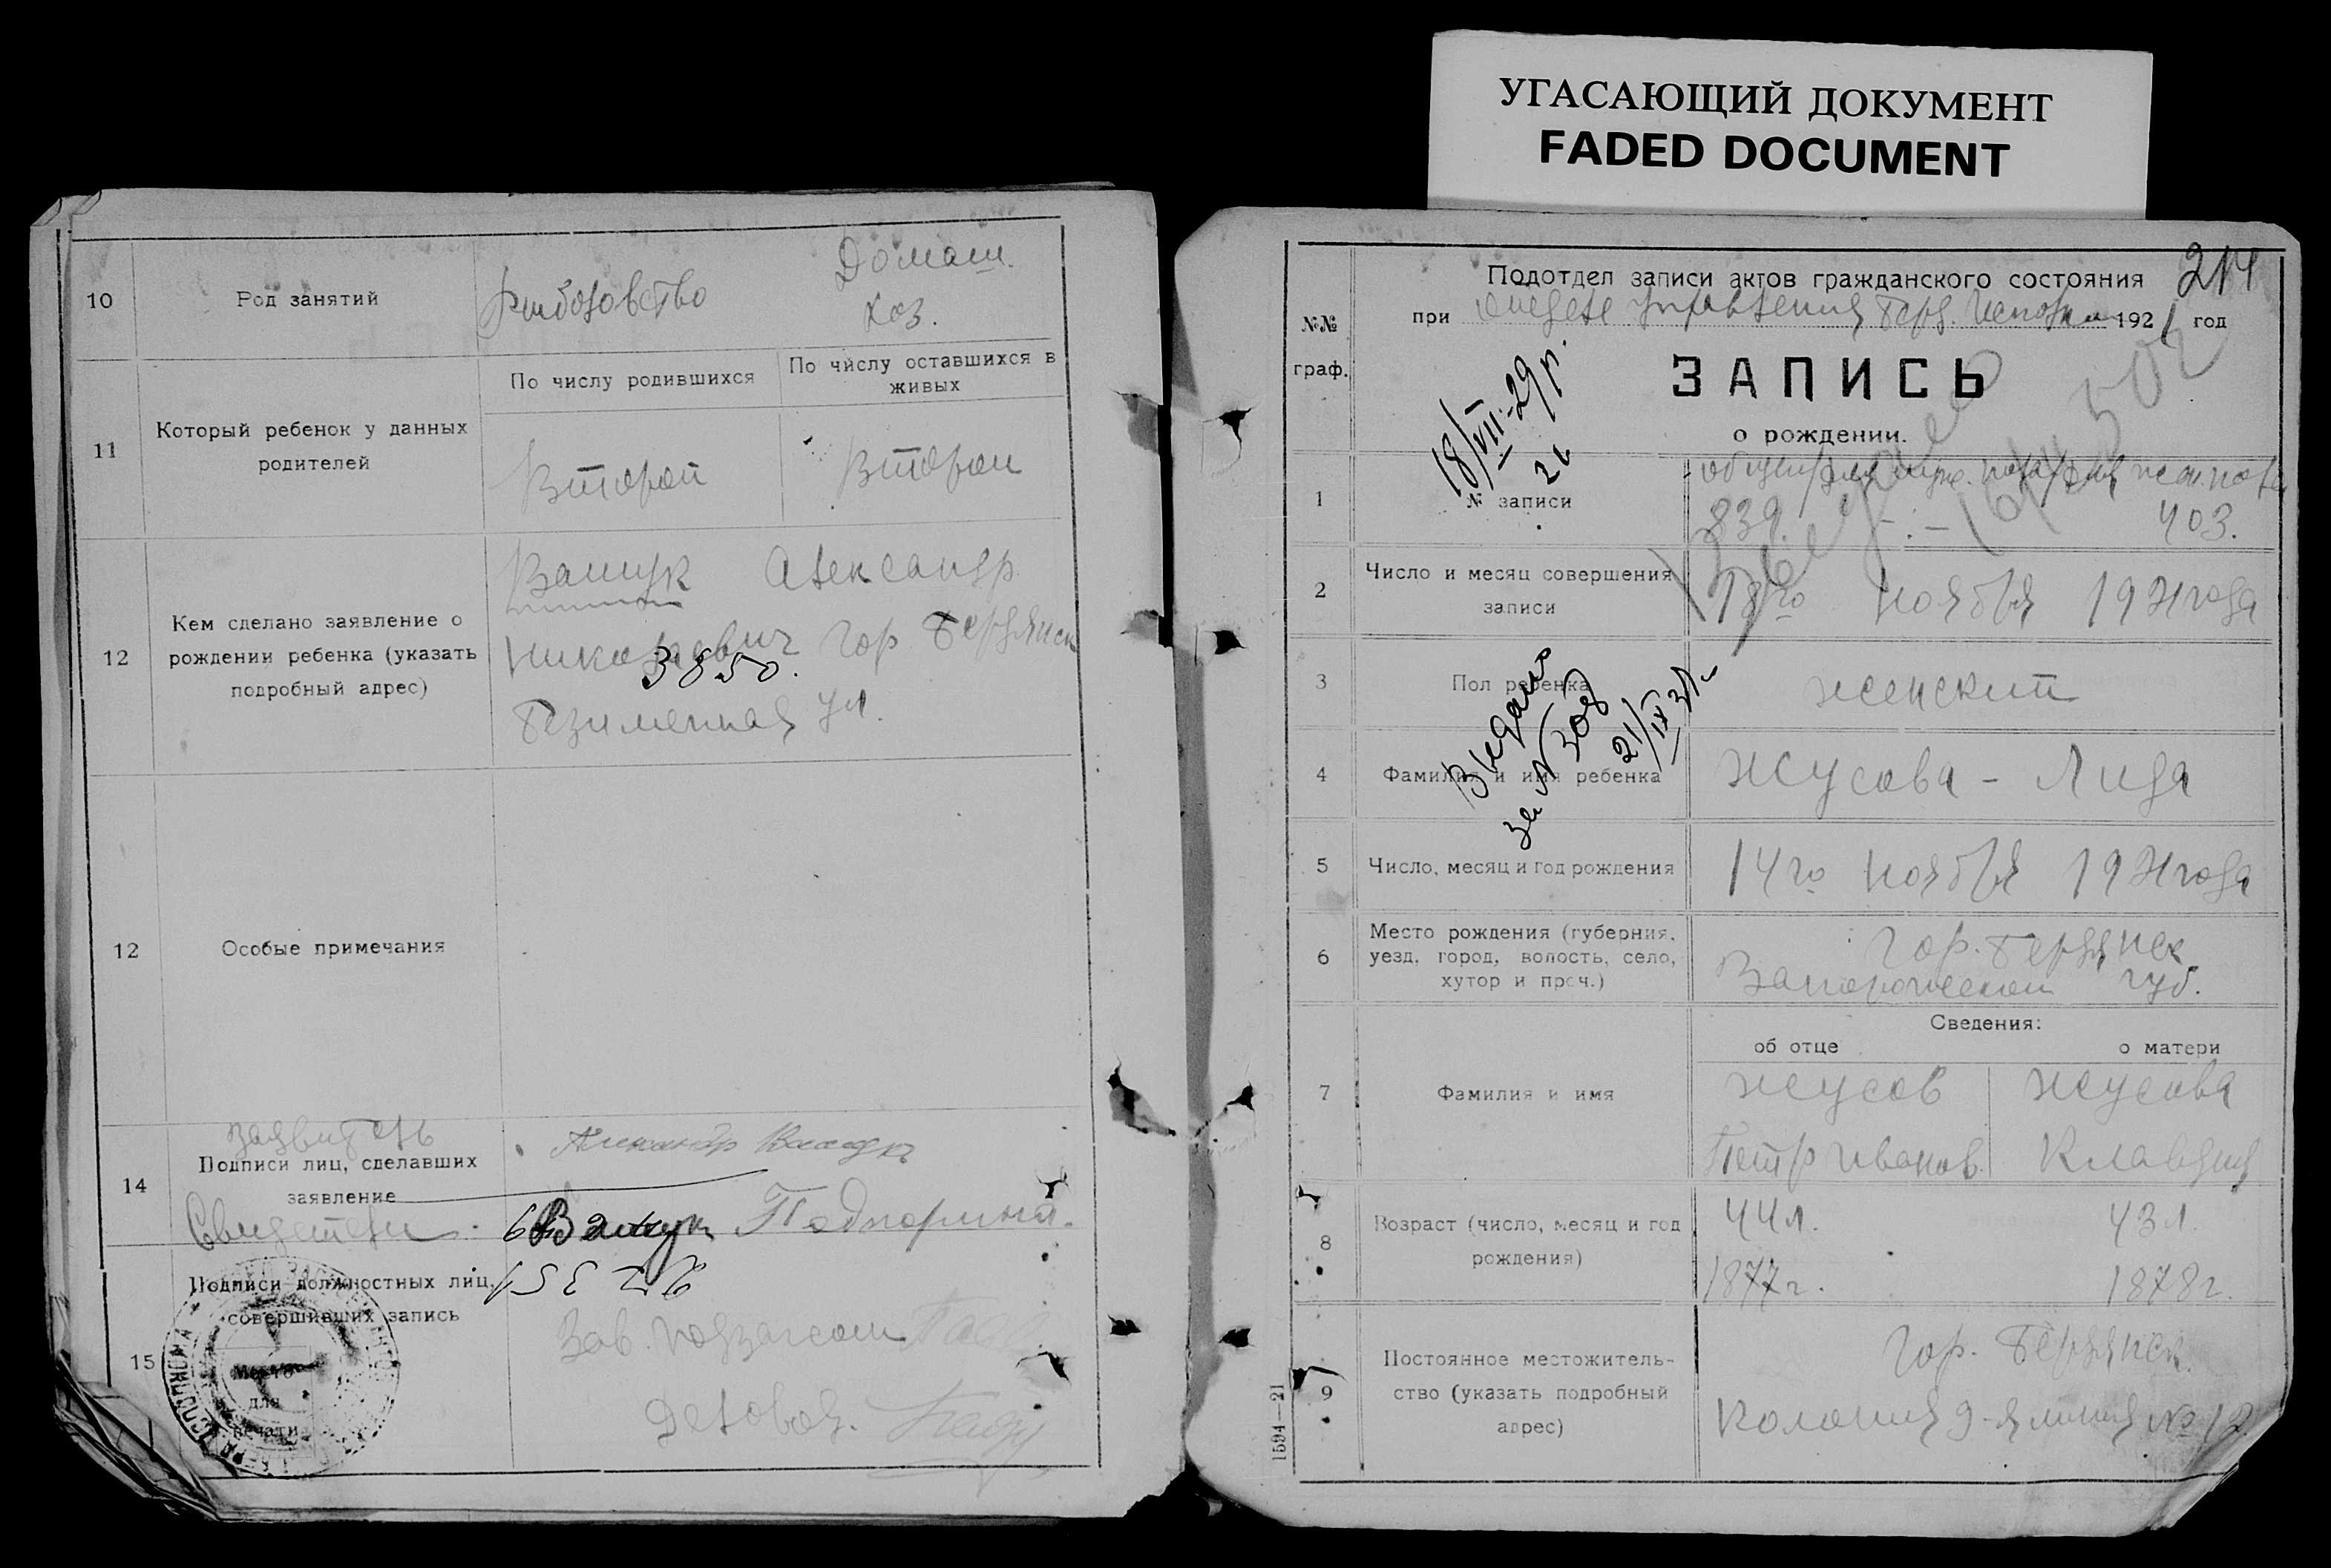 УГАСАЮЩИЙ ДОКУМЕНТ
FADED DOCUMENT
10
Род занятий
Рыболовство
Домаш.
хоз.
11
Который ребенок у данных
родителей
По числу родившихся
По числу оставшихся в
живых
Второй
Второй
12
Кем сделано заявление о
рождении ребенка (указать
подробный адрес)
Вашук Александр
Николаевич гор Бердянск
3850.
Безименная ул.
12
Особые примечания
14
заявитель
Подписи лиц, сделавших
заявление
Свидетели
Александр Вашук
Вашук Подпорина.
15
Подписи должностных лиц,
совершивших запись
Место
для
печати
Зав. подзагсом
Деловод.
214
Подотдел записи актов гражданского состояния
при отделе управления Берд. Исполкома 1921 год
№№
граф.
ЗАПИСЬ
о рождении.
18/VII-29 р.
1
№ записи
839.
403.
2
Число и месяц совершения
записи
18го ноября 1921 года
3
Пол ребенка
женский
Выдано
за № 308
21/IX 31 г.
4
Фамилия и имя ребенка
Жусова - Лида
5
Число, месяц и год рождения
14го ноября 1921 года
6
Место рождения (губерния,
уезд, город, волость, село,
хутор и проч.)
Гор. Бердянск
Запорожской губ.
Сведения:
об отце
о матери
7
Фамилия и имя
Жусов
Петр Иванов.
Жусова
Клавдия
8
Возраст (число, месяц и год
рождения)
44 л.
1877 г.
43 л.
1878 г.
9
Постоянное местожитель-
ство (указать подробный
адрес)
Гор. Бердянск.
Колония 9-я линия № 12.
1594—21